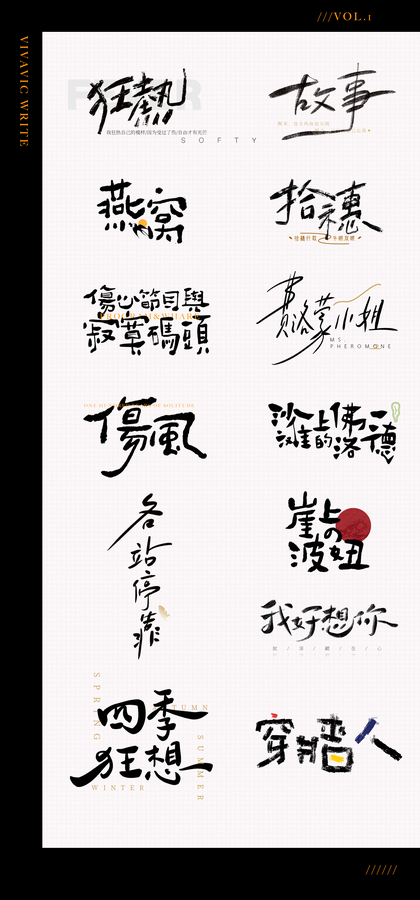 ///VOL.1
VIVAVIC WRITE
狂熱
SOFTY
故事
燕窩
拾穗
傷心節目與
寂寞碼頭
費洛蒙小姐
MS.
PHEROMONE
傷風
沙灘上的佛洛德
各站停靠
崖上の波妞
我好想你
SPRING
AUTUMN
SUMMER
WINTER
四季
狂想
穿牆人
//////